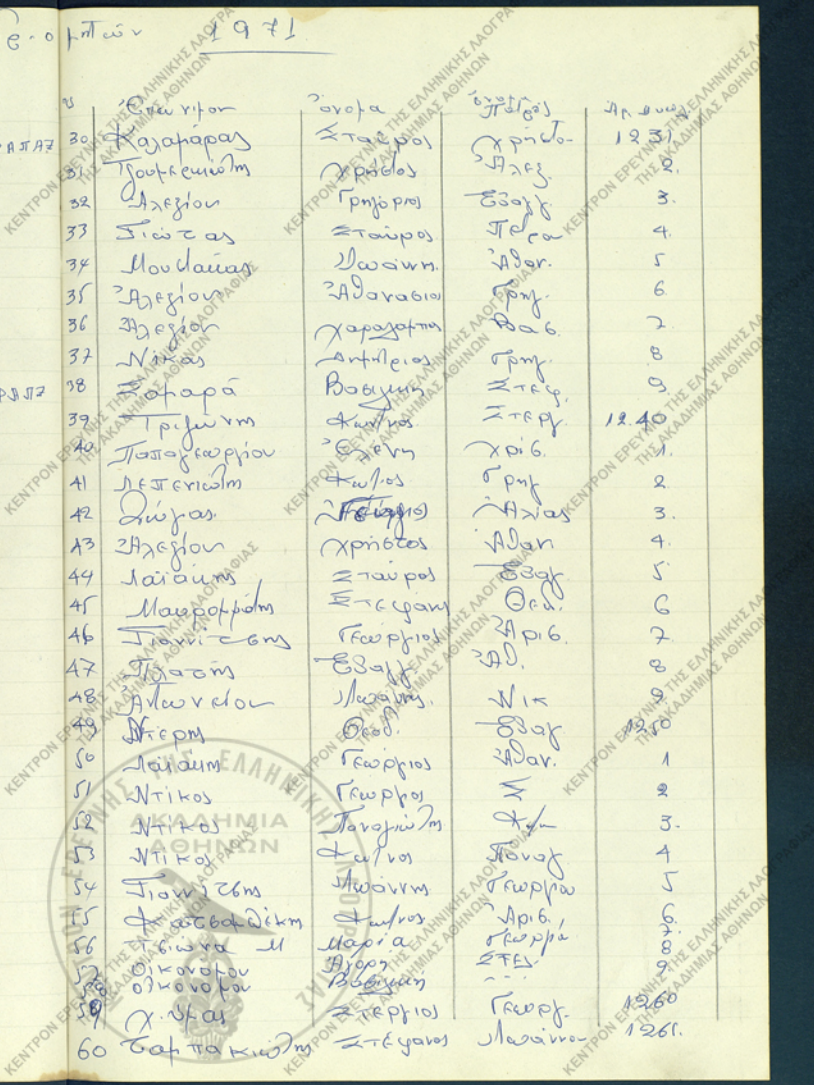 1971.
Ἐπώνυμον ὄνομα ὄνομα Πατρός
30 Καλαμάρας Σταῦρος Χρήστο- 1231
31 Τζουμερκιώτης Χρήστος Ἀλεξ. 2.
32 Ἀλεξίου Γρηγόριος Εὐαγγ. 3.
33 Γιώτας Σταῦρος Πέτρου 4.
34 Μουστάκας Ἰωάννη. Ἀθαν. 5
35 Ἀλεξίου Ἀθανάσιος Γρηγ. 6.
36 Ἀλεξίου Χαράλαμπος Βασ. 7
37 Ντίκας Δημήτριος Γρηγ. 8
38 Σαμαρᾶ Βασιλική Στεφ. 9
39 Τριζώνης Κων/νος Στεργ. 1240
40 Παπαγεωργίου Ἑλένη Χρίσ. 1.
41 Λεπενιώτης Κων/νος Γρηγ 2
42 Ζώγας Γεώργιος Ἠλίας 3.
43 Ἀλεξίου Χρῆστος Ἀθαν 4.
44 Λαϊάκης Σταῦρος Εὐαγ. 5
45 Μαυρομμάτης Στέφανος Θεοδ. 6
46 Γιαννίτσης Γεώργιος Ἀρισ. 7
47 Πλατῆς Εὐαγγ. Ἀθ. 8
48 Ἀντωνείου Ἰωάννης. Νικ 9
49 Ντέρης Θεοδ. Εὐαγ 1250
50 Λαϊάκης Γεώργιος Ἀθαν. 1
51 Ντίκος Γεώργιος 2
52 Ντίκος Παναγιώτης Κων 3.
53 Ντίκος Κων/νος Παναγ. 4
54 Γιαννίτσης Ἰωάννης Γεωργίου 5
55 Κων/νος Ἀρισ. 6.
56 Τσιώνα Μ Μαρία Γεωργίο 7.
57 Οἰκονόμου Ἀγόρη Στεσ. 8
58 Οἰκονόμου Βασιλική 9.
59 Χύμας Στέργιος Γεωργ. 1260
60 Σαμπακιώτης Στέφανος Ἰωάννου 1261.
ΚΕΝΤΡΟΝ ΕΡΕΥΝΗΣ ΤΗΣ ΕΛΛΗΝΙΚΗΣ ΛΑΟΓΡΑΦΙΑΣ
ΤΗΣ ΑΚΑΔΗΜΙΑΣ ΑΘΗΝΩΝ
ΑΚΑΔΗΜΙΑ
ΑΘΗΝΩΝ